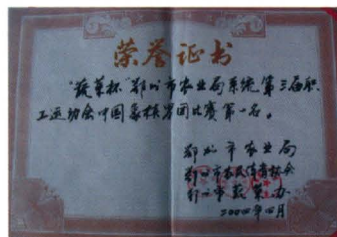 荣誉证书
"蔬菜杯"郑州市农业局系统第三届职
工运动会中国象棋男团比赛第一名。
郑州市农业局
郑州市农民体育协会
郑州市蔬菜办
2004年四月